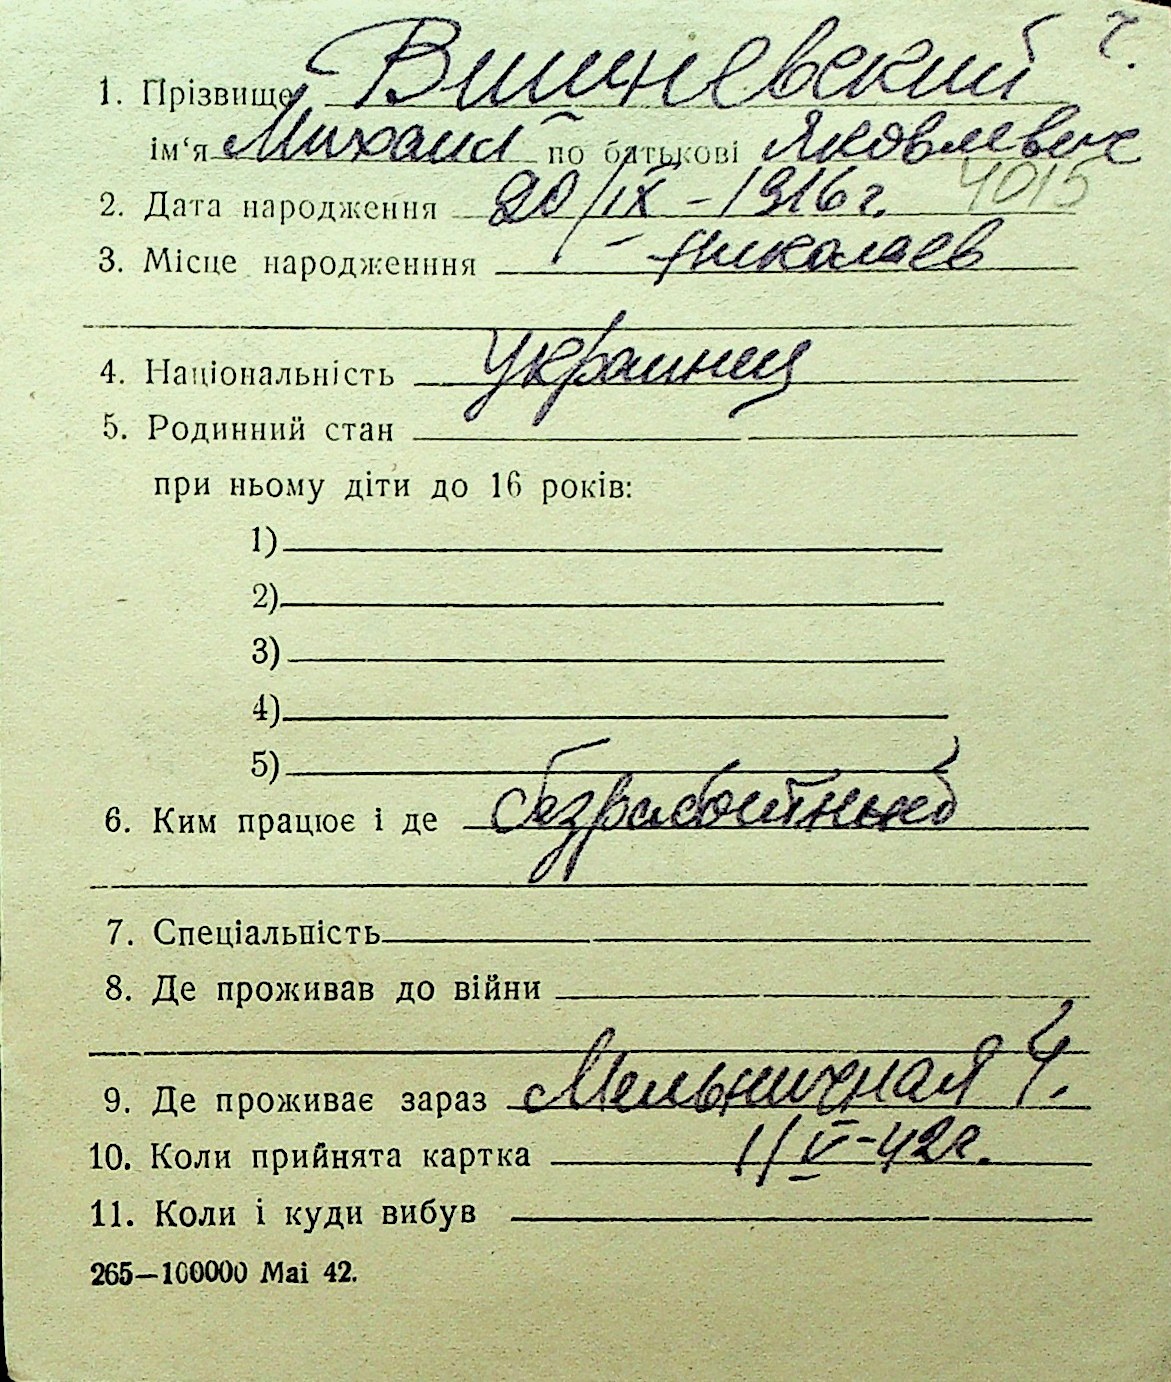 ч.
1. Прізвище Вишневский
ім‘я Михаил по батькові Яковлевич
4015
2. Дата народження 20/IX – 1916 г.
3. Місце народженння Николаев
4. Національність украинец
5. Родинний стан
при ньому діти до 16 років:
1)
2)
3)
4)
5)
6. Ким працює і де безработный
7. Спеціальність
8. Де проживав до війни
9. Де проживає зараз Мельничная 4.
10. Коли прийнята картка 1/V-42г.
11. Коли і куди вибув
265—100000 Mai 42.